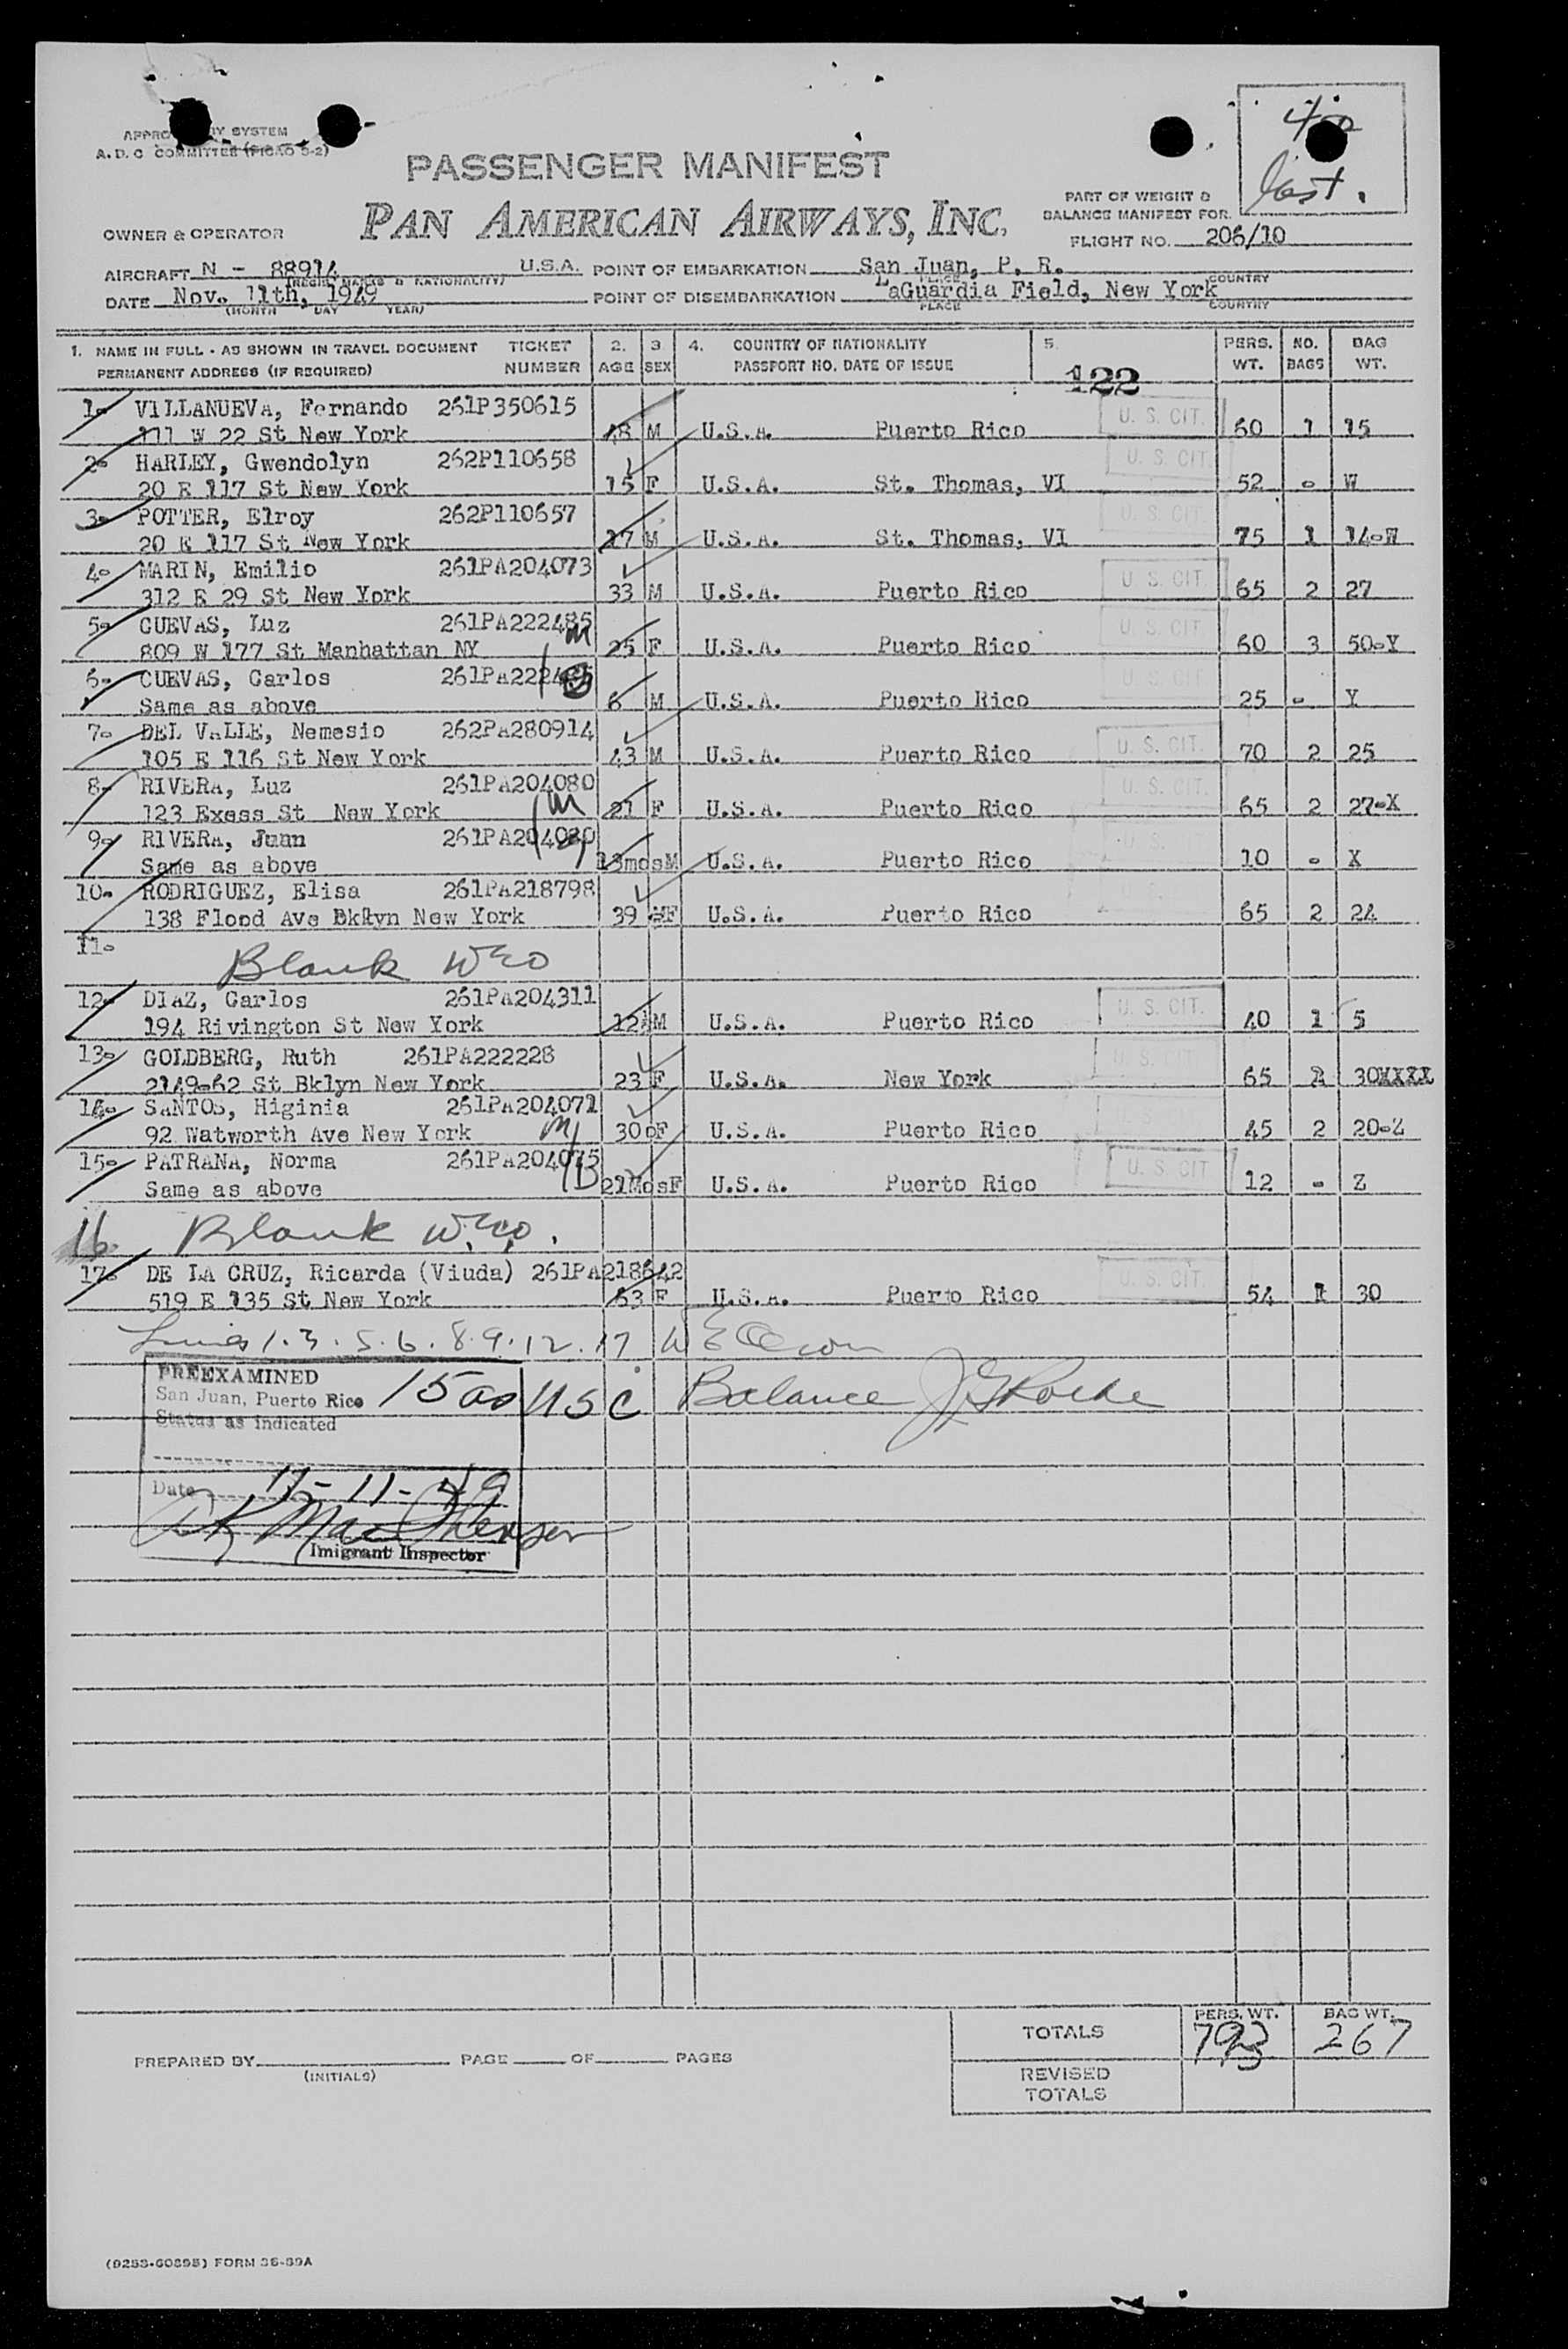 4/
last.
SYSTEM
A.D.C COMMITTEE (PICAO S-2)
PASSENGER MANIFEST
PAN AMERICAN AIRWAYS, INC.
OWNER & OPERATOR
PART OF WEIGHT &
BALANCE MANIFEST FOR.
FLIGHT NO. 206/10
AIRCRAFT N - 88914 U.S.A. POINT OF EMBARKATION San Juan, P. R.
(REGIS. MARKS & NATIONALITY) PLACE COUNTRY
DATE Nov. 11th, 1949 POINT OF DISEMBARKATION LaGuardia Field, New York
(MONTH DAY YEAR) PLACE COUNTRY
1. NAME IN FULL - AS SHOWN IN TRAVEL DOCUMENT TICKET 2. 3 4. COUNTRY OF NATIONALITY 5. PERS. NO. BAG
PERMANENT ADDRESS (IF REQUIRED) NUMBER AGE SEX PASSPORT NO. DATE OF ISSUE WT. BAGS WT.
122
1. VILLANUEVA, Fernando 261P350615 U. S. CIT.
111 W 22 St New York 48 M U.S.A. Puerto Rico 60 1 15
2. HARLEY, Gwendolyn 262P110658 U. S. CIT.
20 E 117 St New York 15 F U.S.A. St. Thomas, VI 52 - W
3. POTTER, Elroy 262P110657 U. S. CIT
20 E 117 St New York 17 M U.S.A. St. Thomas, VI 75 1 14-W
4. MARIN, Emilio 261PA204073 U. S. CIT.
312 E 29 St New York 33 M U.S.A. Puerto Rico 65 2 27
5. CUEVAS, Luz 261PA222485 U. S. CIT
809 W 177 St Manhattan NY M 25 F U.S.A. Puerto Rico 60 3 50-Y
6. CUEVAS, Carlos 261PA222485 U. S. CIT
Same as above 6 M U.S.A. Puerto Rico 25 - Y
7. DEL VALLE, Nemesio 262PA280914 U. S. CIT.
105 E 116 St New York 43 M U.S.A. Puerto Rico 70 2 25
8. RIVERA, Luz 261PA204080 U. S. CIT.
123 Exess St New York M 21 F U.S.A. Puerto Rico 65 2 27-X
9. RIVERA, Juan 261PA204080 U. S.
Same as above 13mosM U.S.A. Puerto Rico 10 - X
10. RODRIGUEZ, Elisa 261PA218798 U. S.
138 Flood Ave Bklyn New York 39 F U.S.A. Puerto Rico 65 2 24
11.
Blank
12. DIAZ, Carlos 261PA204311 U. S. CIT.
194 Rivington St New York 12 M U.S.A. Puerto Rico 40 1 5
13. GOLDBERG, Ruth 261PA222228 U. S.
2149-62 St Bklyn New York 23 F U.S.A. New York 65 30XXXX
14. SANTOS, Higinia 261PA204071
92 Watworth Ave New York M 30 F U.S.A. Puerto Rico 45 2 20-Z
15. PATRANA, Norma 261PA204075 U. S. CIT
Same as above B 21MosF U.S.A. Puerto Rico 12 - Z
16 Blank
17. DE LA CRUZ, Ricarda (Viuda) 261PA218642 U. S. CIT.
519 E 135 St New York 63 F U.S.A. Puerto Rico 54 1 30
Lines 1. 3. 5. 6. 8. 9. 12. 17
PREEXAMINED
San Juan, Puerto Rico 15 as USC Balance
Status as indicated
Date 11-11-49
Imigrant Inspector
TOTALS PERS. WT. BAG WT.
793 267
PREPARED BY PAGE OF PAGES
(INITIALS)
REVISED
TOTALS
(9253-60895) FORM 36-89A